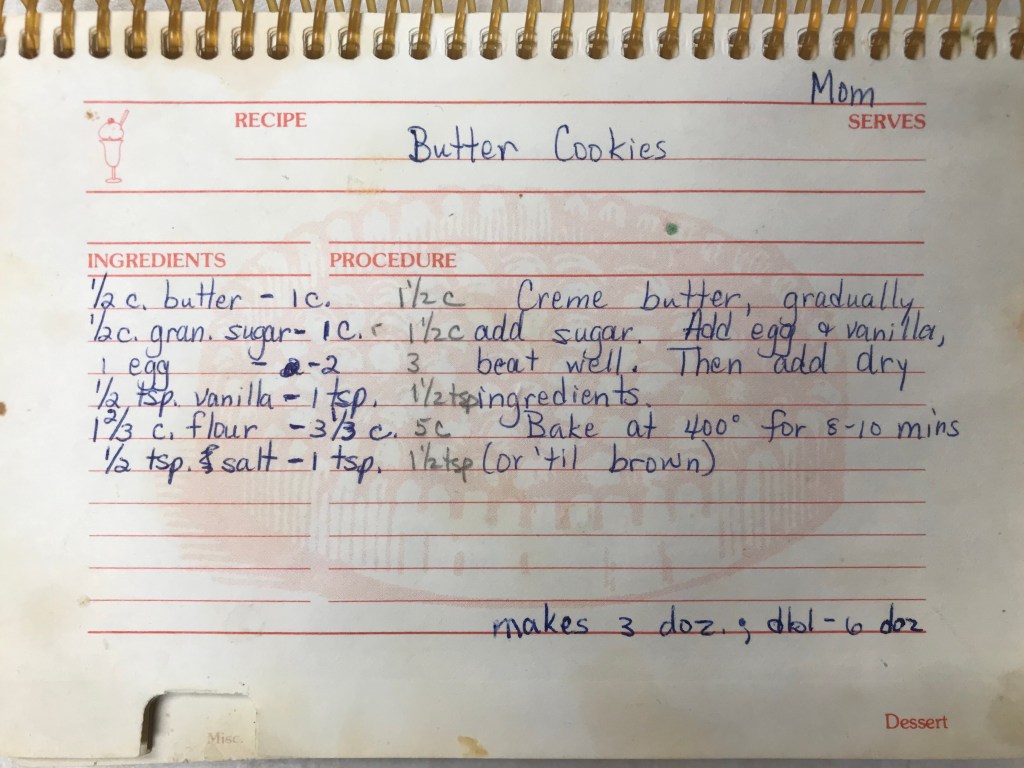 Mom
RECIPE SERVES
Butter Cookies
INGREDIENTS PROCEDURE
1/2 c. butter - 1c. 1 1/2 c Creme butter, gradually
1/2 c. gran. sugar - 1c. 1 1/2 c add sugar. Add egg & vanilla,
1 egg - 2 3 beat well. Then add dry
1/2 tsp. vanilla - 1 tsp. 1 1/2 tsp ingredients.
1 2/3 c. flour - 3 1/3 c. 5c Bake at 400° for 8-10 mins
1/2 tsp. salt - 1 tsp. 1 1/2 tsp (or 'til brown)
makes 3 doz.; dbl - 6 doz
Misc. Dessert